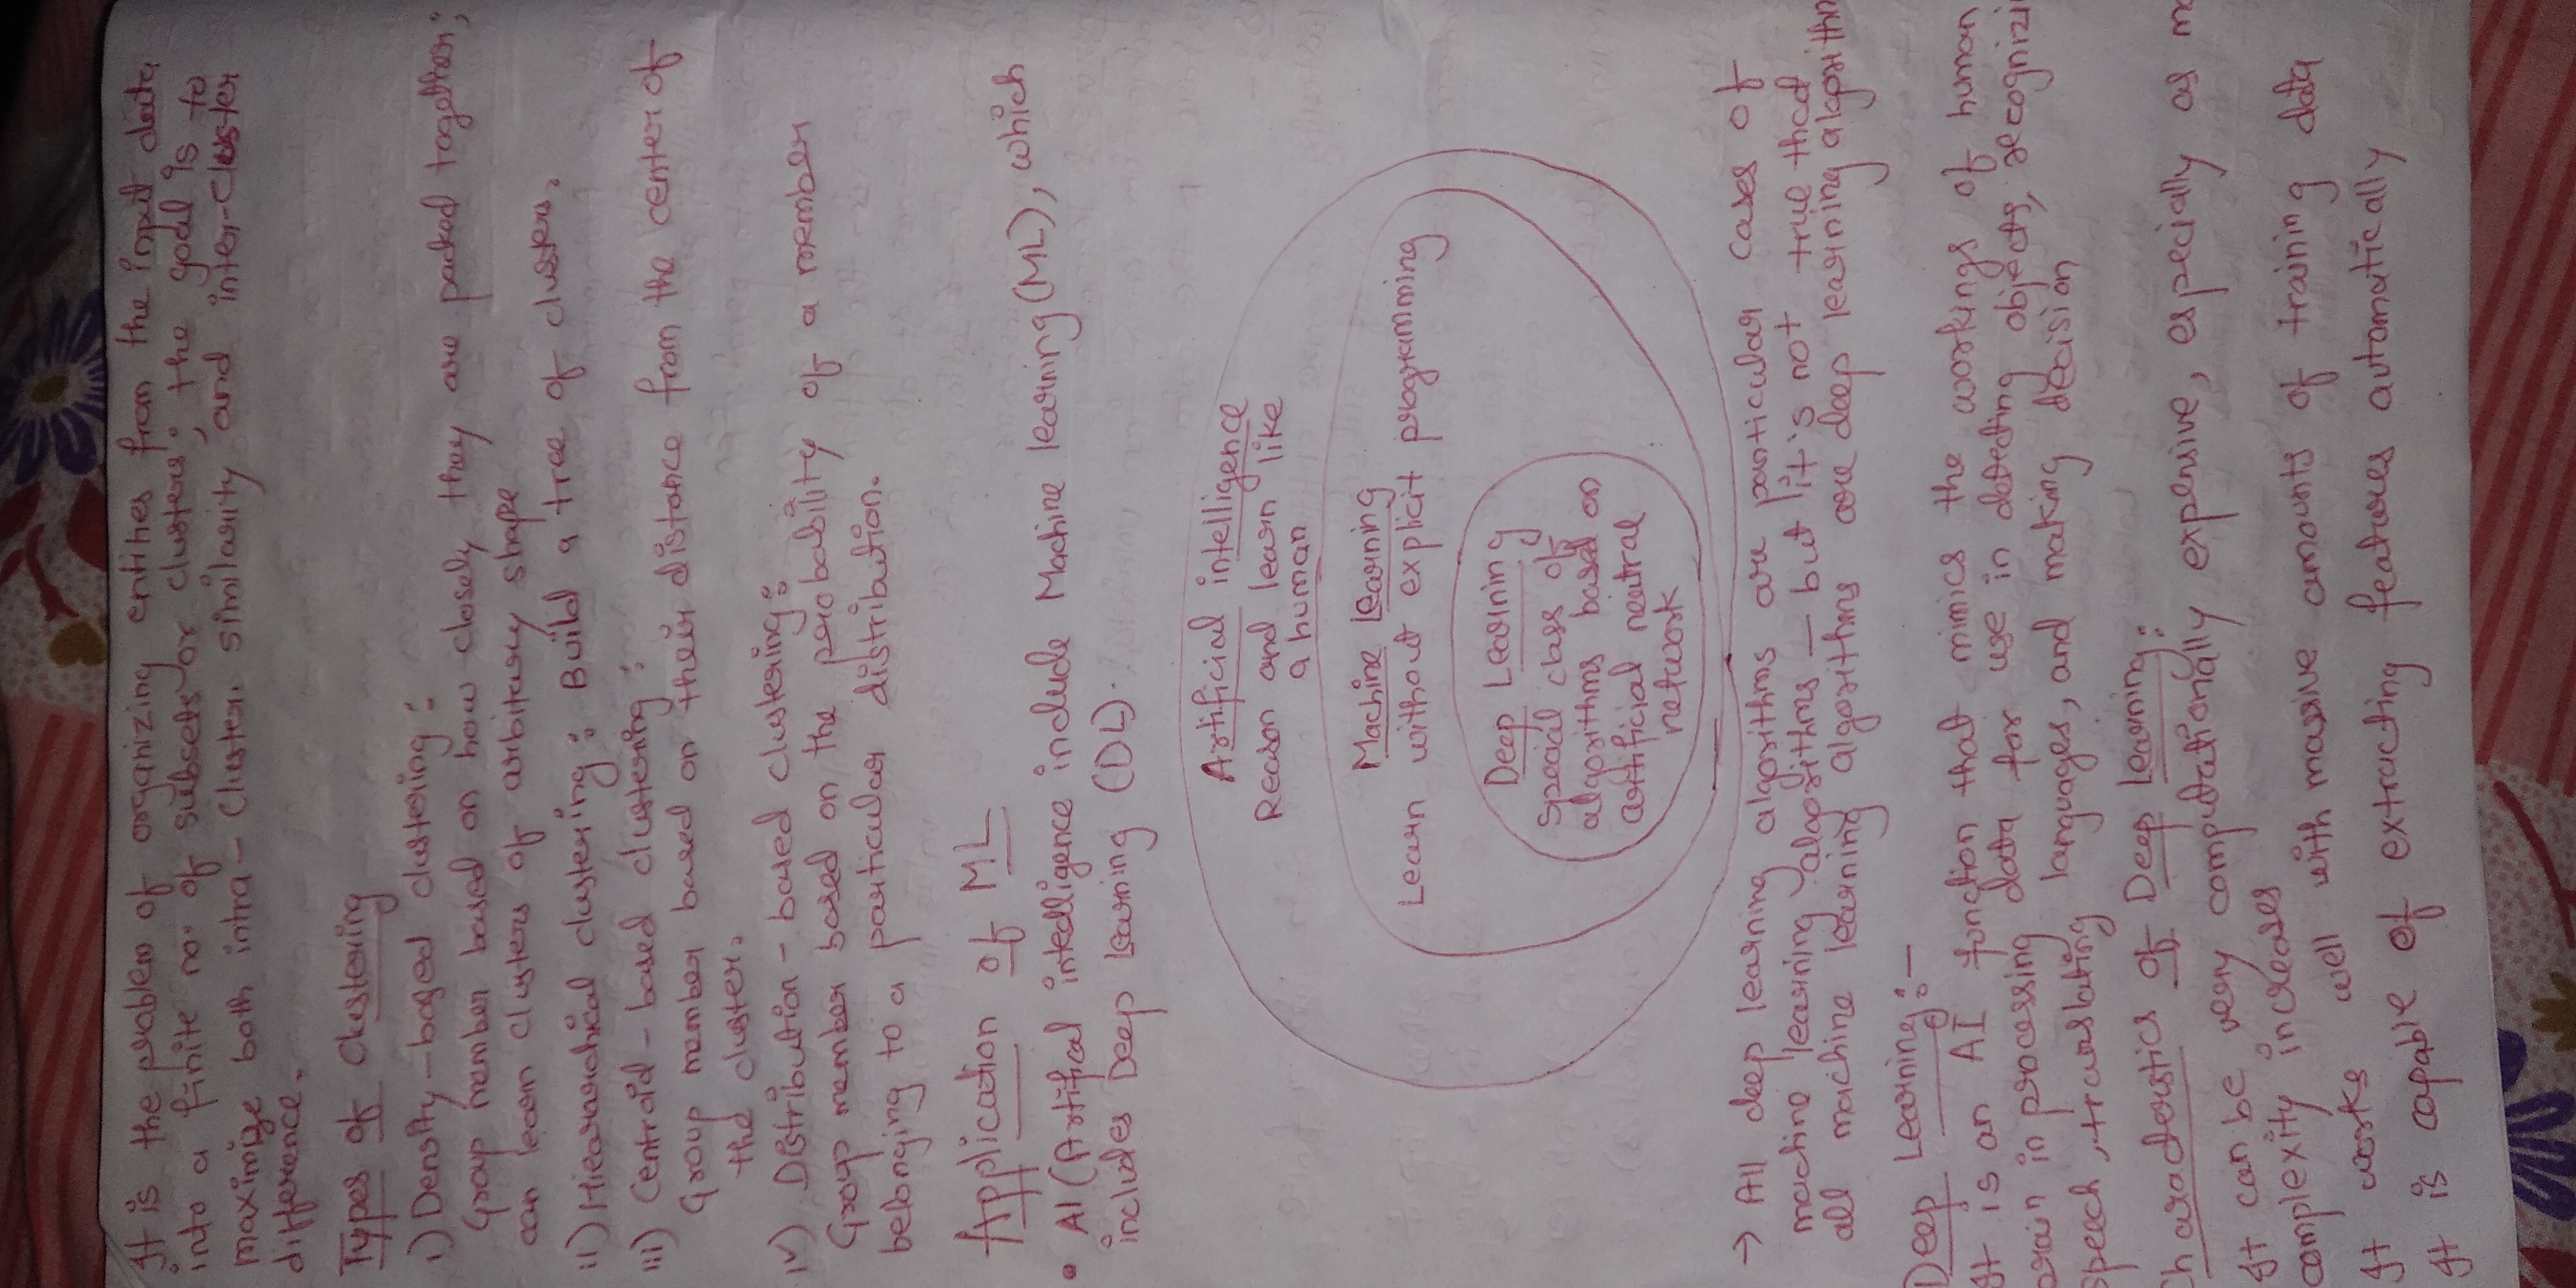 It is the problem of organizing entities from the input data
into a finite no. of subsets or clusters; the goal is to
maximize both intra-cluster similarity and inter-cluster
difference.
Types of clustering
i) Density-based clustering:
Group member based on how closely they are packed together;
can learn clusters of arbitary shape
ii) Hiearachical clustering: Build a tree of clusters.
iii) Centroid-based clustering:
Group member based on their distance from the center of
the cluster.
iv) Distribution-based clustering:
Group member based on the probability of a member
belonging to a particular distribution.
Application of ML
• AI (Artifical intelligence include Machine learning (ML), which
includes Deep Learning (DL).
Artificial intelligence
Reason and learn like
a human
Machine Learning
Learn without explicit programming
Deep Learning
Special class of
algorithms based on
artificial neutral
network
→ All deep learning algorithms are particular cases of
machine learning algorithms — but it's not true that
all machine learning algorithms are deep learning algorithm
Deep Learning:-
It is an AI function that mimics the workings of human
brain in processing data for use in detecting objects, recognizi
speech, translating languages, and making decision
Characteristics of Deep Learning:
It can be very computationally expensive, especially as mo
complexity increases
It works well with massive amounts of training data
It is capable of extracting features automatically